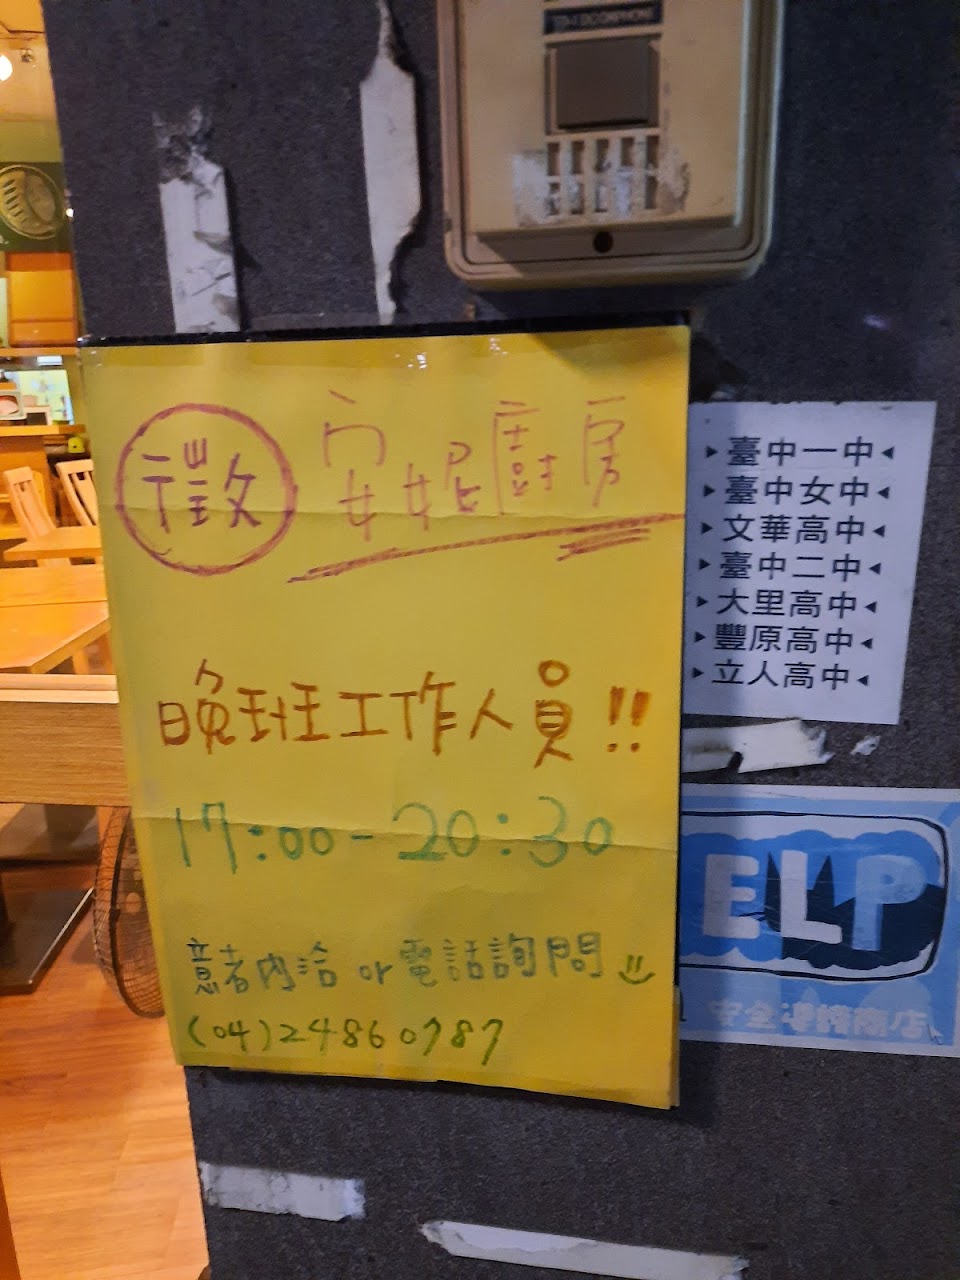 徵 安妮廚房
晚班工作人員!!
17:00-20:30
意者內洽 or 電話詢問
(04)24860787
臺中一中
臺中女中
文華高中
臺中二中
大里高中
豐原高中
立人高中
ELP
安全連鎖商店